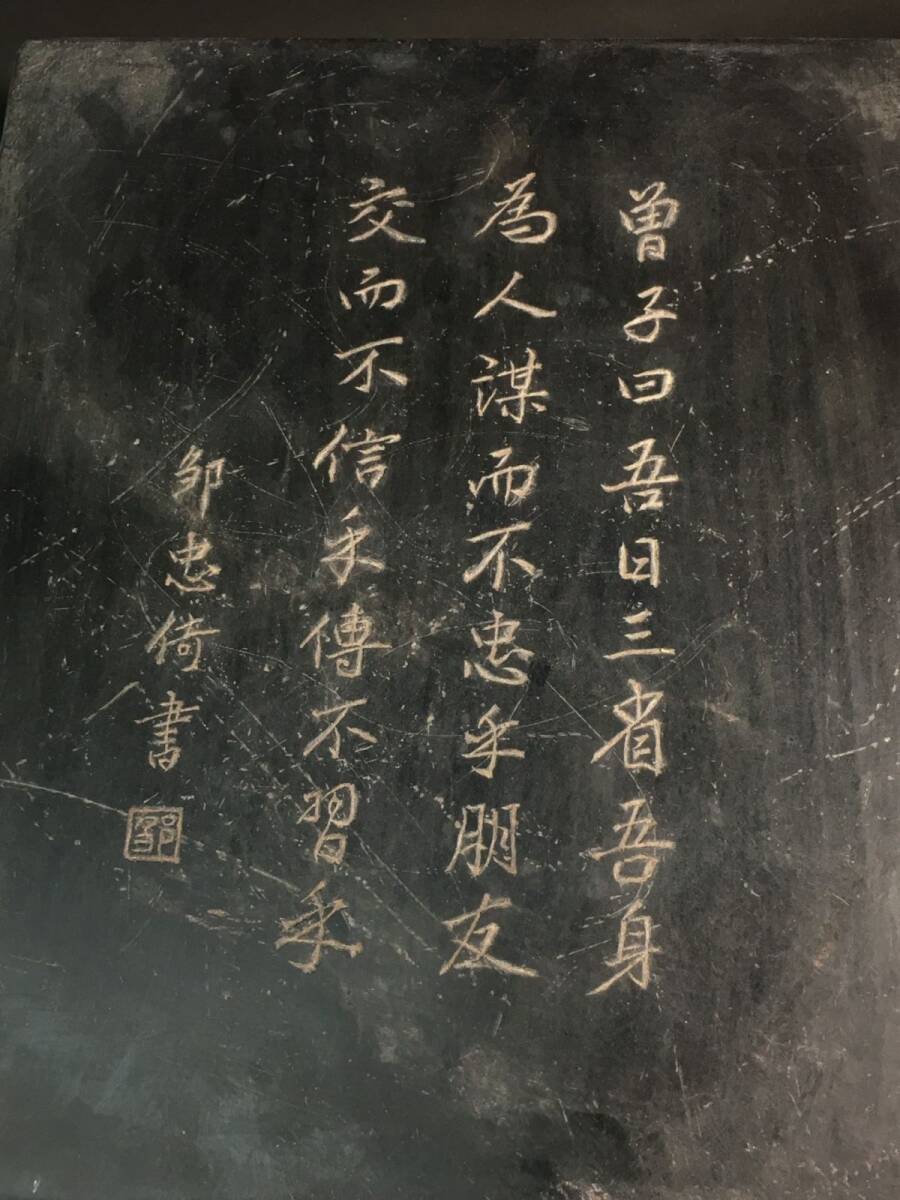 曾子曰吾日三省吾身
為人謀而不忠乎朋友
交而不信乎傳不習乎
邹忠倚書
鄒